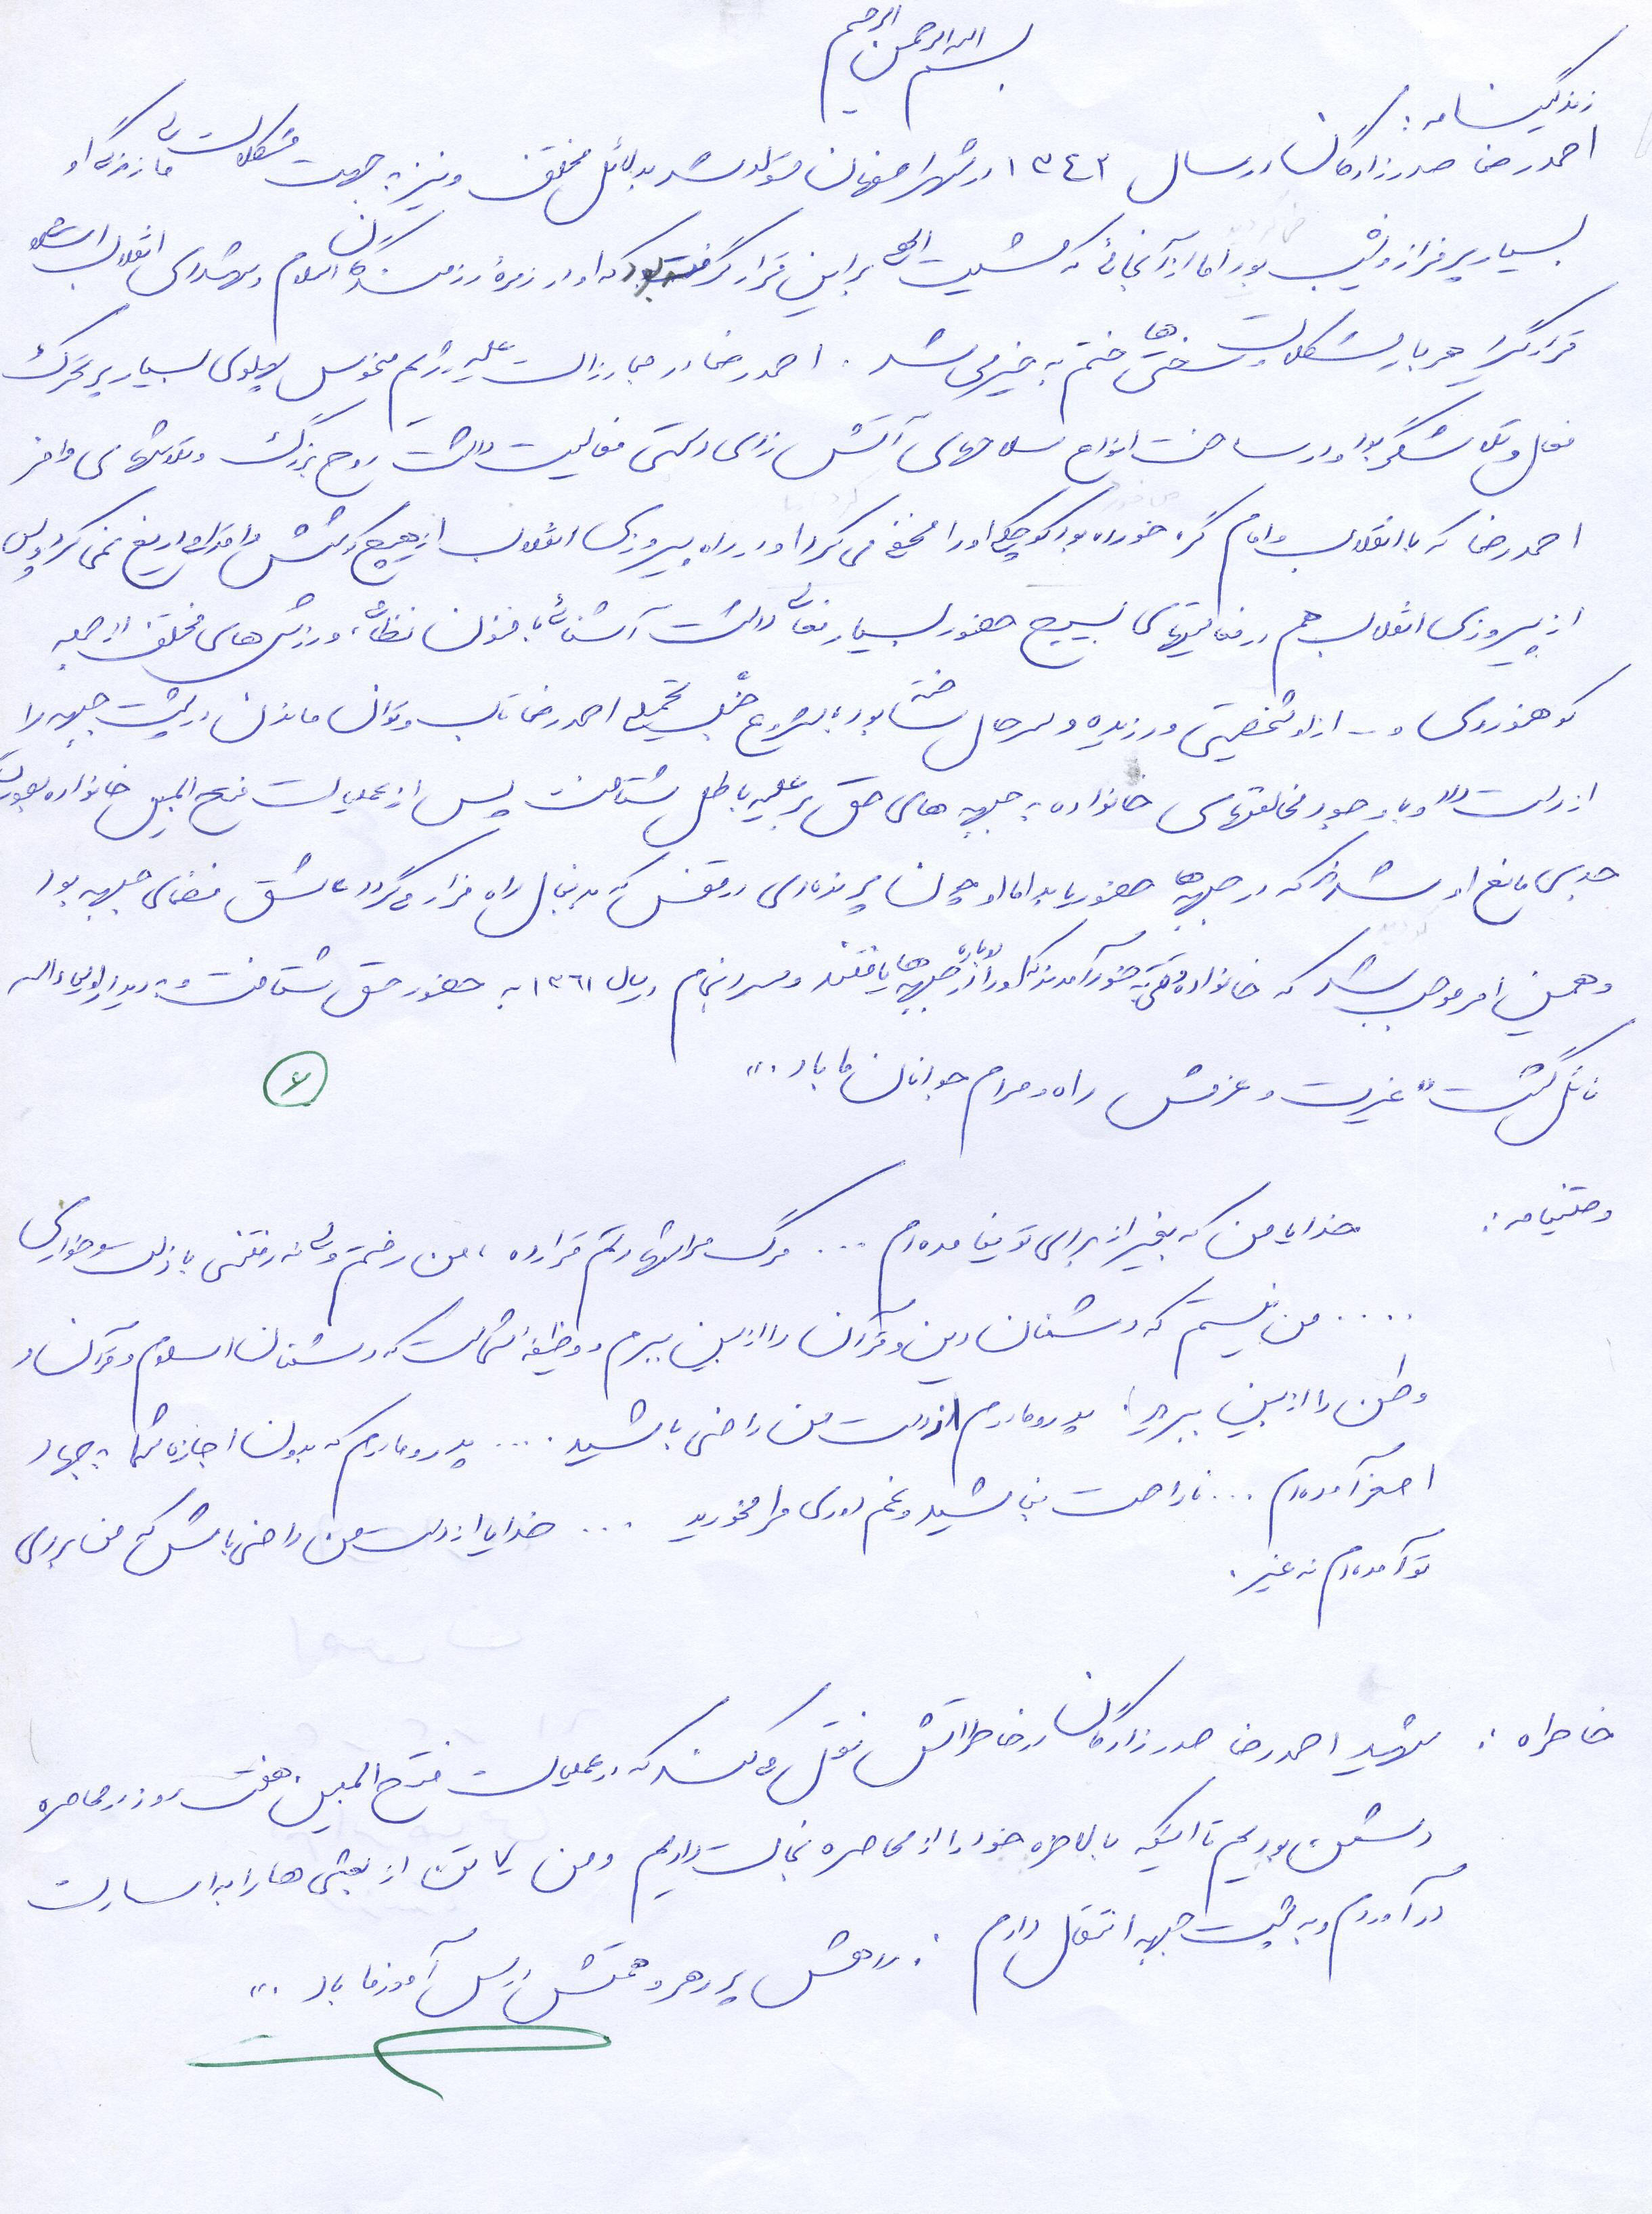 بسم الله الرحمن الرحیم
زندگینامه:
احمدرضا صدرزادگان در سال ۱۳۴۳ در شهر اصفهان متولد شد به دلائل مختلف و نیز به جهت مشکلات مالی زندگی او
بسیار پر فراز و نشیب بود اما از آنجائی که مشیت الهی بر این قرار گرفته بود که او در زمرهٔ رزمندگان اسلام و شهدای انقلاب اسلامی
قرار گیرد هر بار مشکلات و سختی ها ختم به خیر می شد. احمدرضا در مبارزات علیه رژیم منحوس پهلوی بسیار پرتحرک
فعال و تلاشگر بود او در ساخت انواع سلاحهای آتش زای دستی فعالیت داشت روح بزرگ و تلاشهای وافر
احمدرضا که با انقلاب و امام گره خورده بود کوچکی او را مخفی می کرد او در راه پیروزی انقلاب از هیچ کوشش و اقدامی دریغ نمی کرد و پس
از پیروزی انقلاب هم در فعالیتهای بسیج حضور بسیار فعالی داشت آشنائی با فنون نظامی، ورزش های مختلف از جمله
کوهنوردی و ... از او شخصیتی ورزیده و سرحال ساخته بود با شروع جنگ تحمیلی احمدرضا تاب و توان ماندن در پشت جبهه را
از دست داد و با وجود مخالفتهای خانواده به جبهه های حق بر علیه باطل شتافت پس از عملیات فتح المبین خانواده بصورت
جدی مانع او شدند که در جبهه ها حضور یابد اما او چون پرنده ای در قفس که بدنبال راه فرار می گردد عاشق فضای جبهه بود
و همین امر موجب شد که خانواده وقتی به خود آمدند که او را دوباره در جبهه ها یافتند و سرانجام در سال ۱۳۶۱ به حضور حق شتافت و به دیدار اولیاء الله
نائل گشت "عزت و عزمش راه و مرام جوانان ما باد."
۶
وصیتنامه: خدایا من که بغیر از برای تو نیامده ام ... مرگ مرا شهادتم قرار ده، من رفتم ولی نه رفتنی با ذلت و خواری
..... من نیستم که دشمنان دین و قرآن را از بین ببرم و وظیفه شماست که دشمنان اسلام و قرآن و
وطن را از بین ببرید. پدر و مادرم از دست من راضی باشید .... پدر و مادرم که بدون اجازه شما به جهاد
اصغر آمده ام ... ناراحت نباشید و غم دوری مرا مخورید ... خدایا از دست من راضی باش که من برای
تو آمده ام نه غیر.
خاطره: شهید احمدرضا صدرزادگان در خاطراتش نقل می کند که در عملیات فتح المبین هفت روز در محاصره
دشمن بودیم تا اینکه بالاخره خود را از محاصره نجات دادیم و من تن از بعثی ها را به اسارت
در آوردم و به پشت جبهه انتقال دادم. "راهش پر رهرو و همتش درس آموز ما باد."